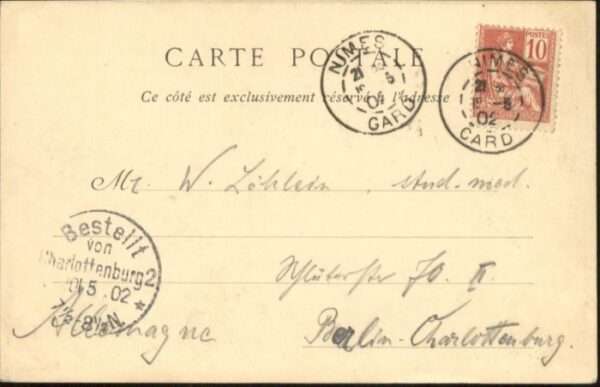 CARTE POSTALE
Ce côté est exclusivement réservé à l'adresse
POSTE
10
NIMES
21
5
02
GARD
NIMES
21
5
02
GARD
Mr. W. Löhlein, stud. med.
Schlüterstr 70. II.
Berlin-Charlottenburg.
Allemagne
Bestellt
von
Charlottenburg 2
5. 02
N